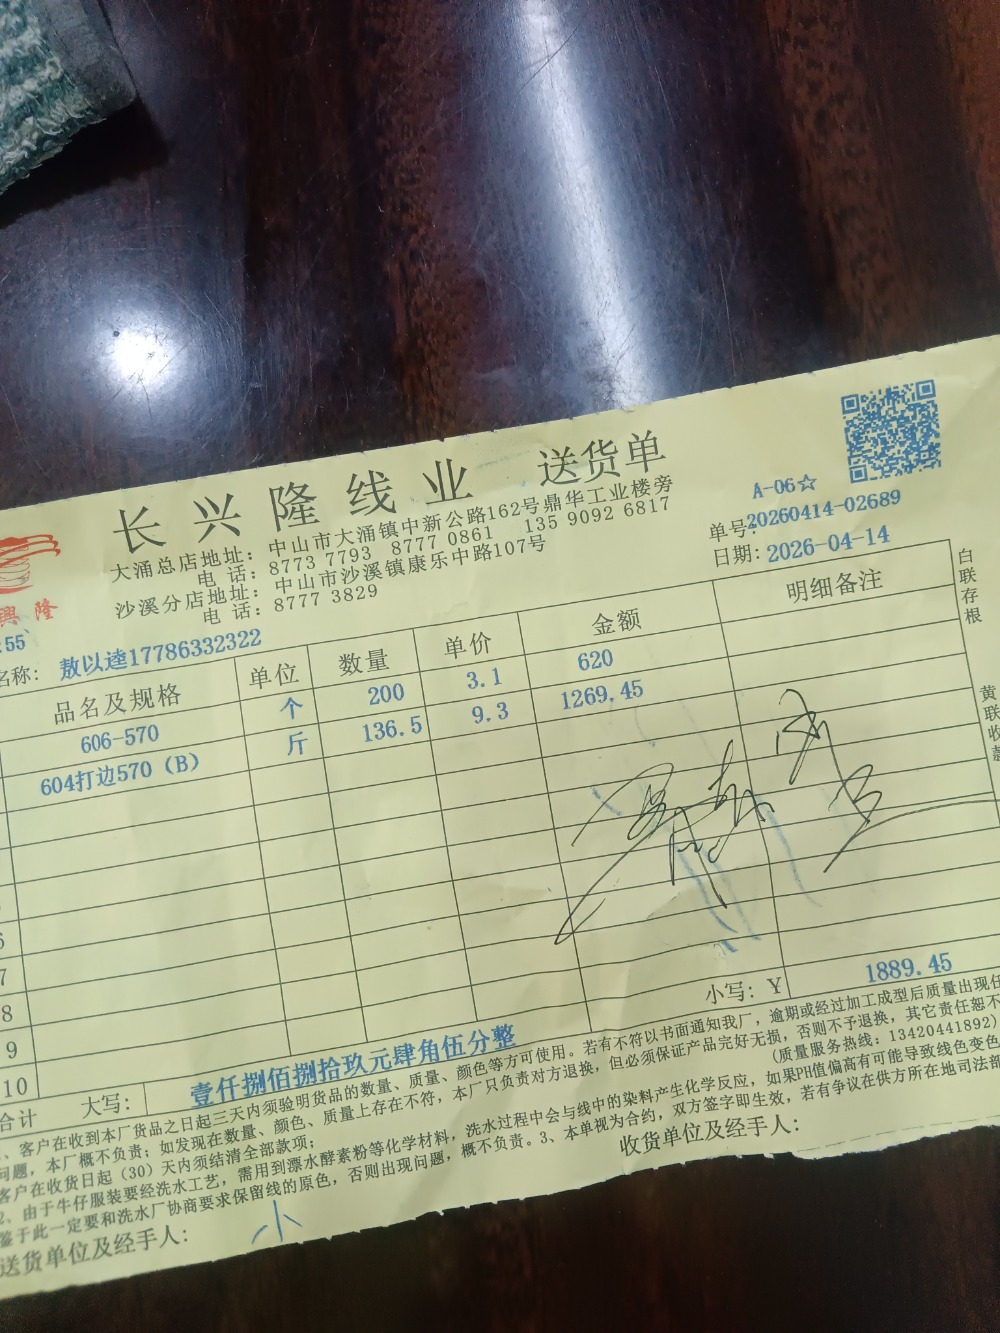 长兴隆线业 送货单
大涌总店地址：中山市大涌镇中新公路162号鼎华工业楼旁
电 话：8773 7793 8777 0861 135 9092 6817
沙溪分店地址：中山市沙溪镇康乐中路107号
电 话：8777 3829
A-06☆
单号：20260414-02689
日期：2026-04-14
興 隆
:55
名称：敖以逵17786332322
品名及规格 单位 数量 单价 金额 明细备注
606-570 个 200 3.1 620
604打边570（B） 斤 136.5 9.3 1269.45
6
7
8
9
10
小写：￥ 1889.45
合计 大写： 壹仟捌佰捌拾玖元肆角伍分整
、客户在收到本厂货品之日起三天内须验明货品的数量、质量、颜色等方可使用。若有不符以书面通知我厂，逾期或经过加工成型后质量出现任
问题，本厂概不负责；如发现在数量、颜色、质量上存在不符，本厂只负责对方退换，但必须保证产品完好无损，否则不予退换，其它责任恕不
客户在收货日起（30）天内须结清全部款项；（质量服务热线：13420441892）
2、由于牛仔服装要经洗水工艺，需用到漂水酵素粉等化学材料，洗水过程中会与线中的染料产生化学反应，如果PH值偏高有可能导致线色变色
鉴于此一定要和洗水厂协商要求保留线的原色，否则出现问题，概不负责。3、本单视为合约，双方签字即生效，若有争议在供方所在地司法部
送货单位及经手人： 小
收货单位及经手人：
白联存根
黄联收款